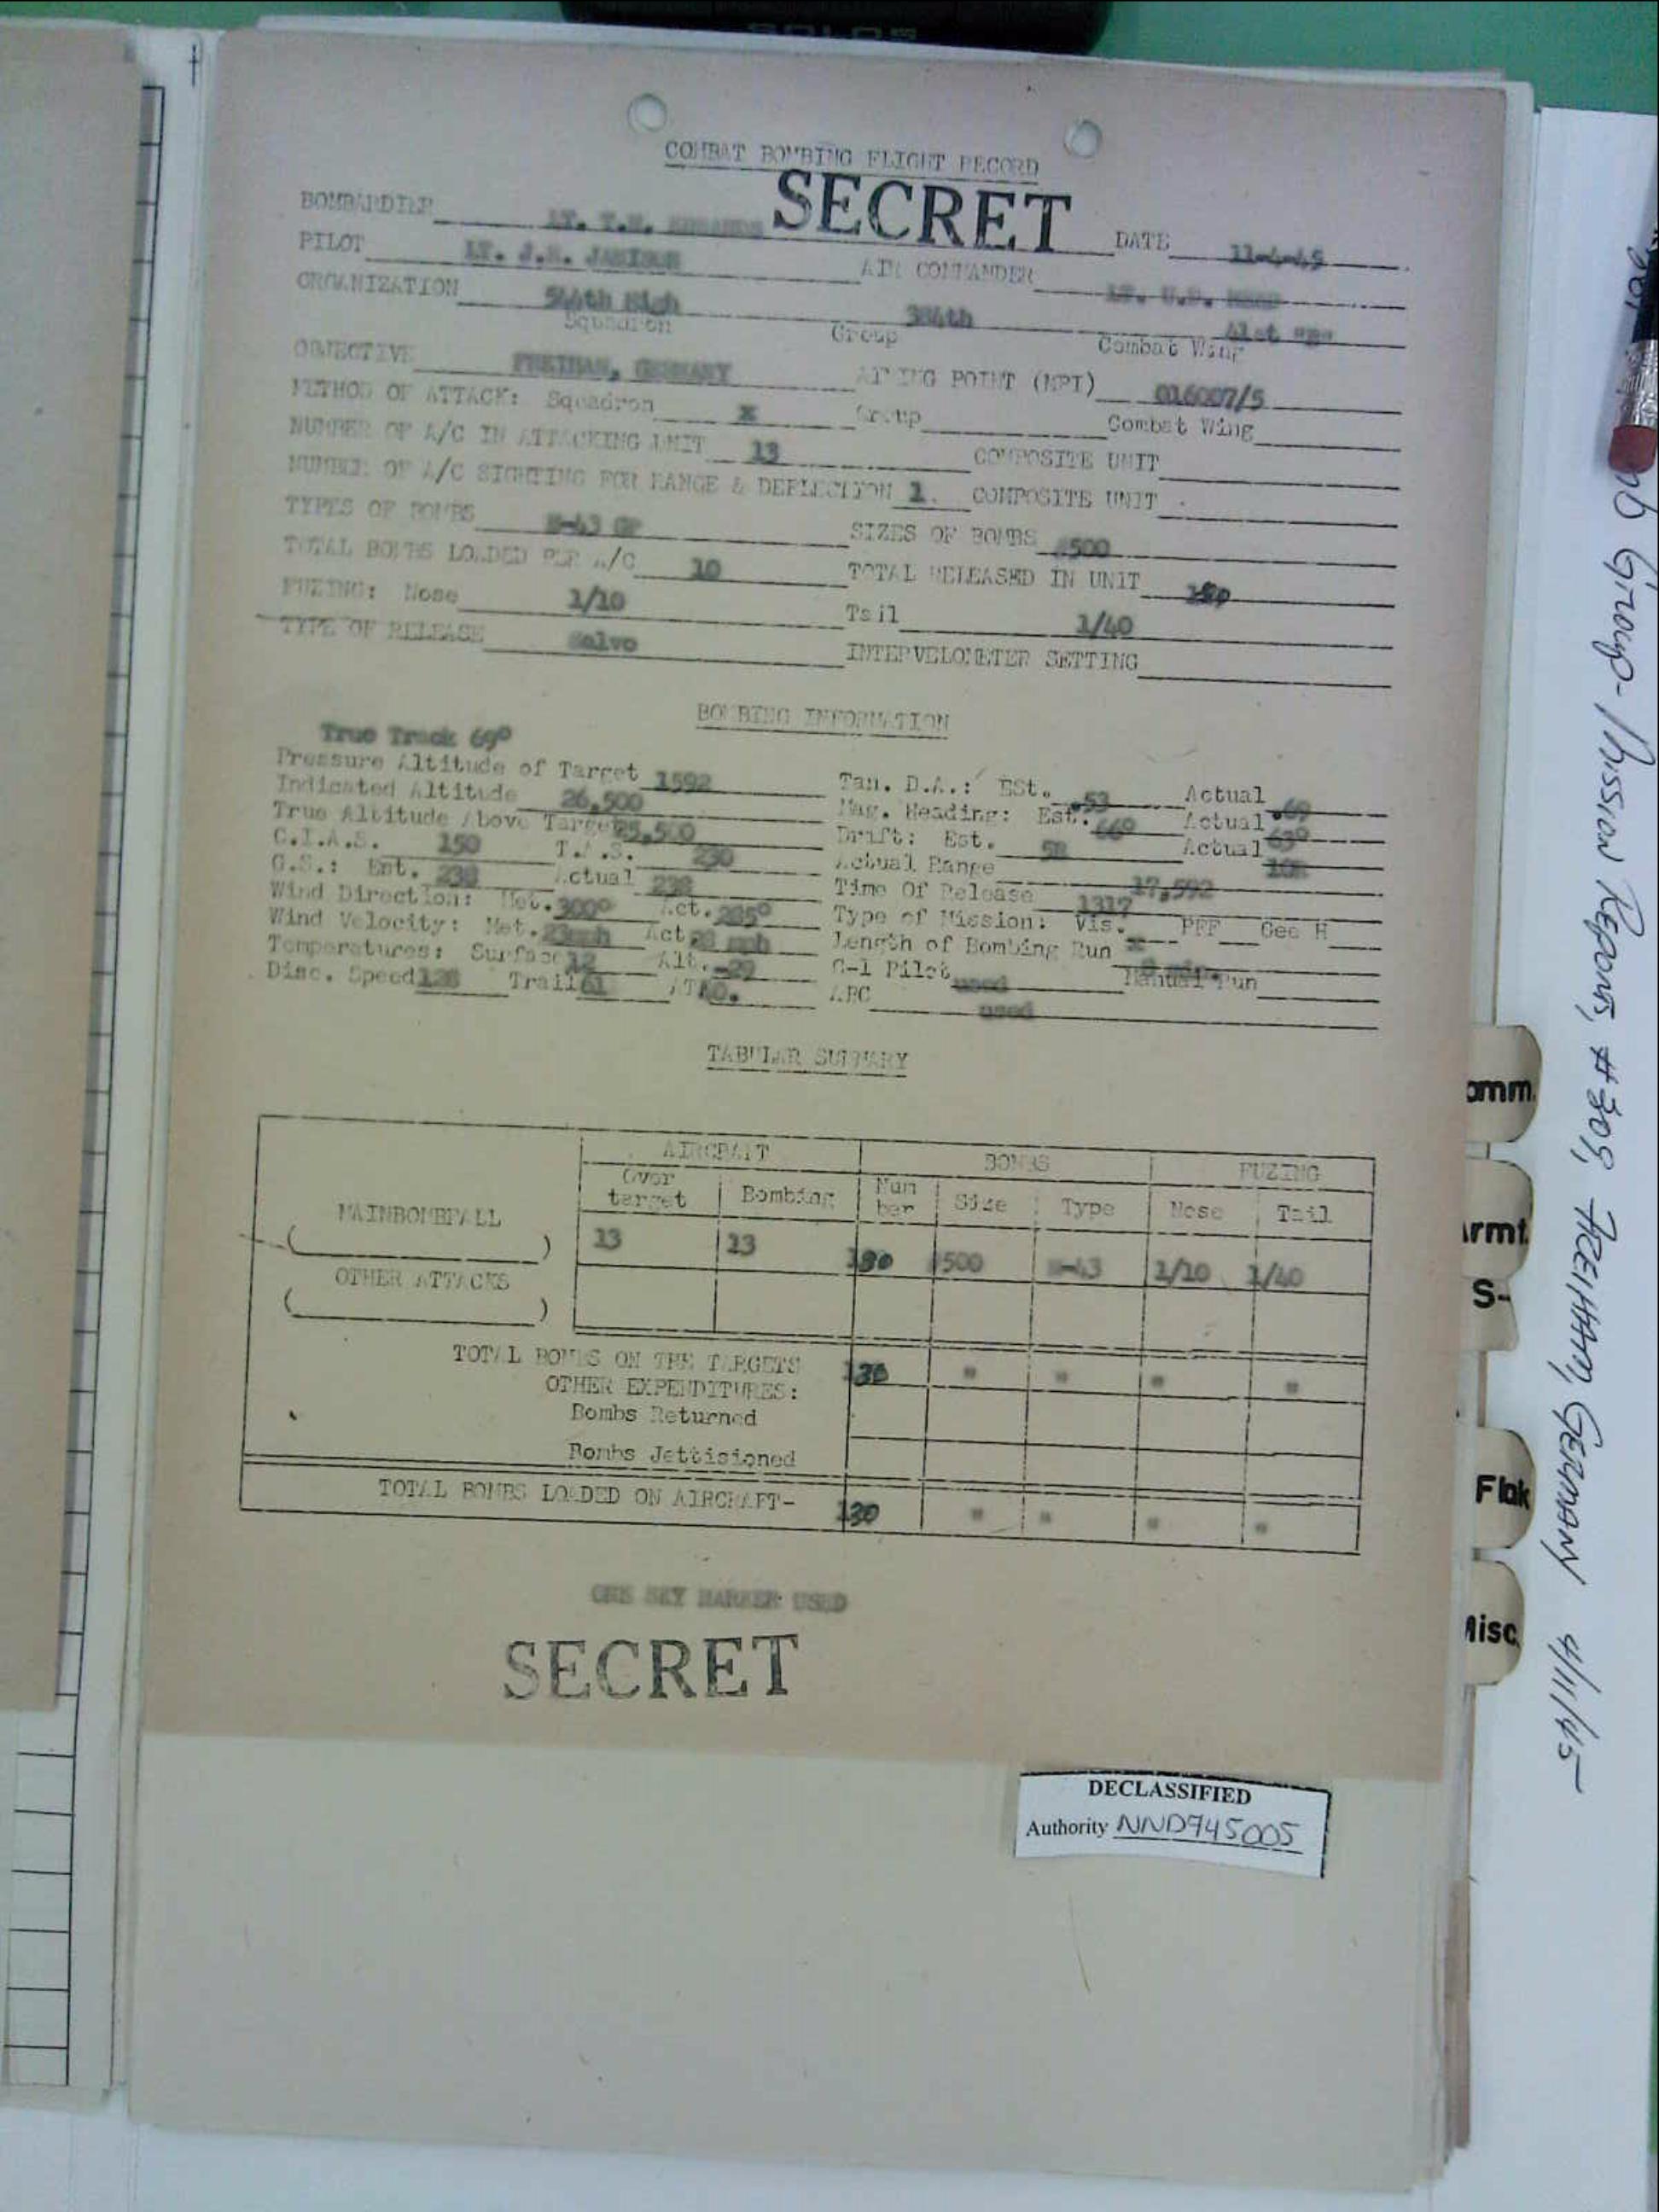 COMBAT BOMBING FLIGHT RECORD
SECRET
BOMBARDIER LT. T.W. DATE 11-4-45
PILOT LT. J.R. AIR COMMANDER LT. U.S.
ORGANIZATION 544th High 384th 41st "B"
Squadron Group Combat Wing
OBJECTIVE FREIHAM, GERMANY AIMING POINT (MPI) 016007/5
METHOD OF ATTACK: Squadron X Group Combat Wing
NUMBER OF A/C IN ATTACKING UNIT 13 COMPOSITE UNIT
NUMBER OF A/C SIGHTING FOR RANGE & DEFLECTION 1. COMPOSITE UNIT
TYPES OF BOMBS M-43 GP SIZES OF BOMBS #500
TOTAL BOMBS LOADED PER A/C 10 TOTAL RELEASED IN UNIT
FUZING: Nose 1/10 Tail 1/40
TYPE OF RELEASE Salvo INTERVELOMETER SETTING
BOMBING INFORMATION
True Track 69°
Pressure Altitude of Target 1592 Tan. D.A.: Est. .53 Actual .69
Indicated Altitude 26,500 Mag. Heading: Est. 66° Actual 63°
True Altitude Above Target Drift: Est. 5R Actual 10R
C.I.A.S. 150 T.A.S. 230 Actual Range 17,592
G.S.: Est. 238 Actual 238 Time Of Release 1317
Wind Direction: Met. 300° Act. 285° Type of Mission: Vis. x PFF Gee H
Wind Velocity: Met. 23mph Act 28 mph Length of Bombing Run
Temperatures: Surface 12 Alt. -29 C-1 Pilot used Manual Run
Disc. Speed 128 Trail 61 ATF AFC used
TABULAR SUMMARY
AIRCRAFT BOMBS FUZING
MAINBOMBFALL Over target Bombing Number Size Type Nose Tail
( ) 13 13 130 #500 M-43 1/10 1/40
OTHER ATTACKS
( )
TOTAL BOMBS ON THE TARGETS 130 " " " "
OTHER EXPENDITURES:
Bombs Returned
Bombs Jettisioned
TOTAL BOMBS LOADED ON AIRCRAFT- 130 " " " "
ONE SKY MARKER USED
SECRET
DECLASSIFIED
Authority NND945005
omm.
Armt.
S-
Flak
Misc.
Group - Mission Reports, #309, FREIHAM, GERMANY 4/11/45